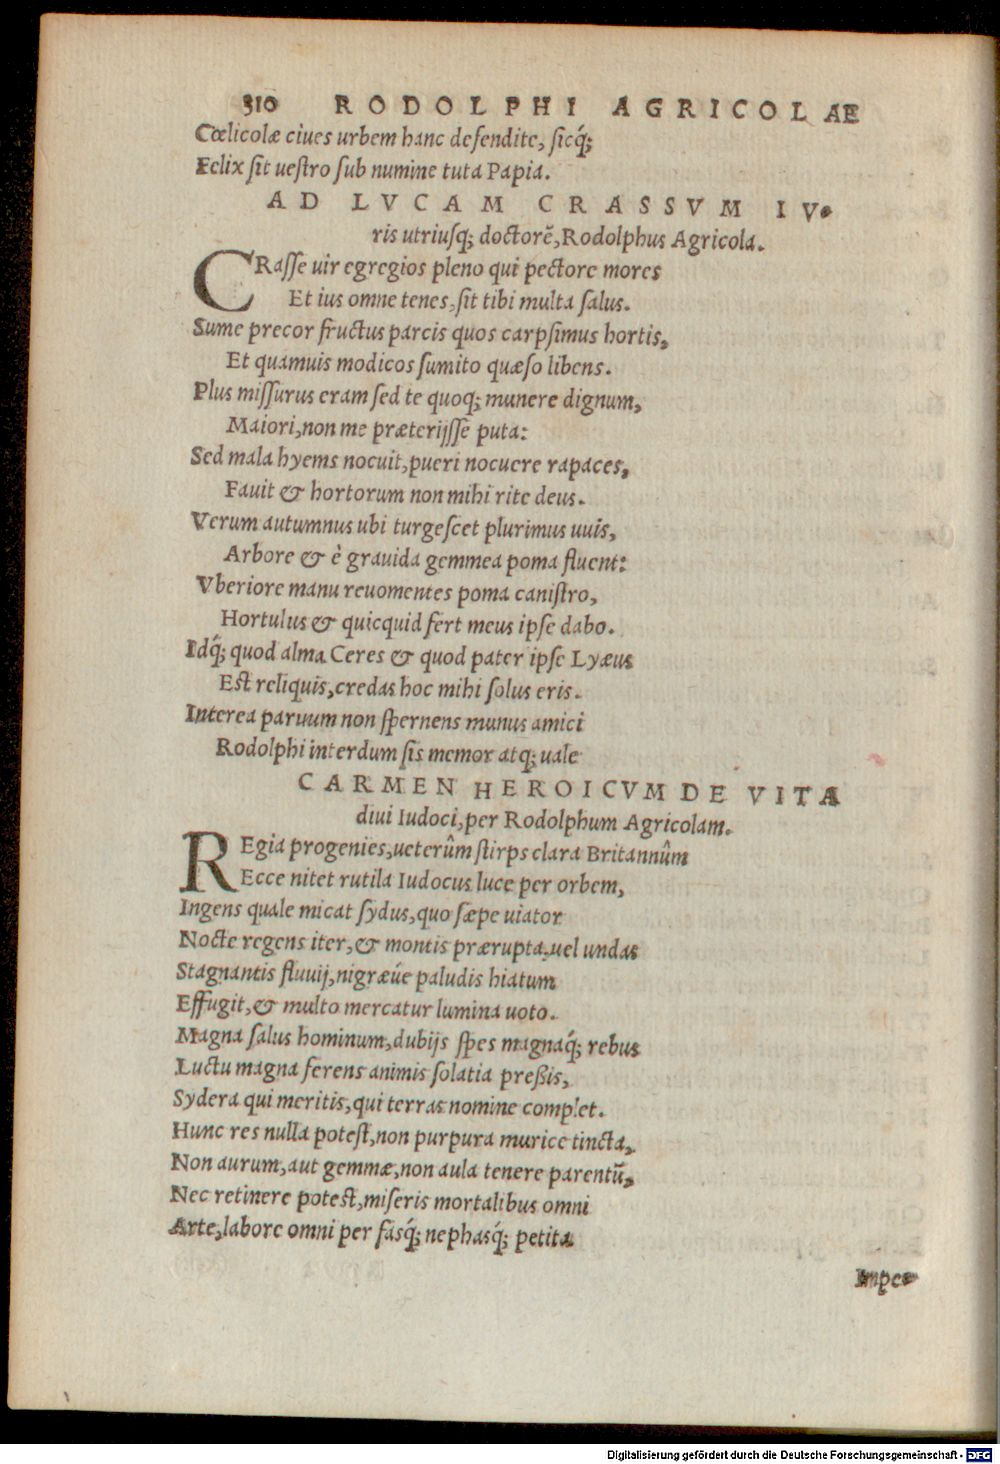 310 RODOLPHI AGRICOLAE
Cœlicolæ ciues urbem hanc defendite, sicq́;
Felix sit uestro sub numine tuta Papia.
AD LVCAM CRASSVM IV-
ris utriusq; doctorẽ, Rodolphus Agricola.
CRasse uir egregios pleno qui pectore mores
Et ius omne tenes, sit tibi multa salus.
Sume precor fructus parcis quos carpsimus hortis,
Et quamuis modicos sumito quæso libens.
Plus missurus eram sed te quoq; munere dignum,
Maiori, non me præterijsse puta:
Sed mala hyems nocuit, pueri nocuere rapaces,
Fauit & hortorum non mihi rite deus.
Verum autumnus ubi turgescet plurimus uuis,
Arbore & è grauida gemmea poma fluent:
Vberiore manu reuomentes poma canistro,
Hortulus & quicquid fert meus ipse dabo.
Idq́; quod alma Ceres & quod pater ipse Lyæus
Est reliquis, credas hoc mihi solus eris.
Interea paruum non spernens munus amici
Rodolphi interdum sis memor atq; uale
CARMEN HEROICVM DE VITA
diui Iudoci, per Rodolphum Agricolam.
REgia progenies, ueterûm stirps clara Britannûm
Ecce nitet rutila Iudocus luce per orbem,
Ingens quale micat sydus, quo sæpe uiator
Nocte regens iter, & montis prærupta, uel undas
Stagnantis fluuij, nigræúe paludis hiatum
Effugit, & multo mercatur lumina uoto.
Magna salus hominum, dubijs spes magnaq́; rebus
Luctu magna ferens animis solatia preßis,
Sydera qui meritis, qui terras nomine complet.
Hunc res nulla potest, non purpura murice tincta,
Non aurum, aut gemmæ, non aula tenere parentũ,
Nec retinere potest, miseris mortalibus omni
Arte, labore omni per fasq́; nephasq́; petita
Impe-
Digitalisierung gefördert durch die Deutsche Forschungsgemeinschaft - DFG